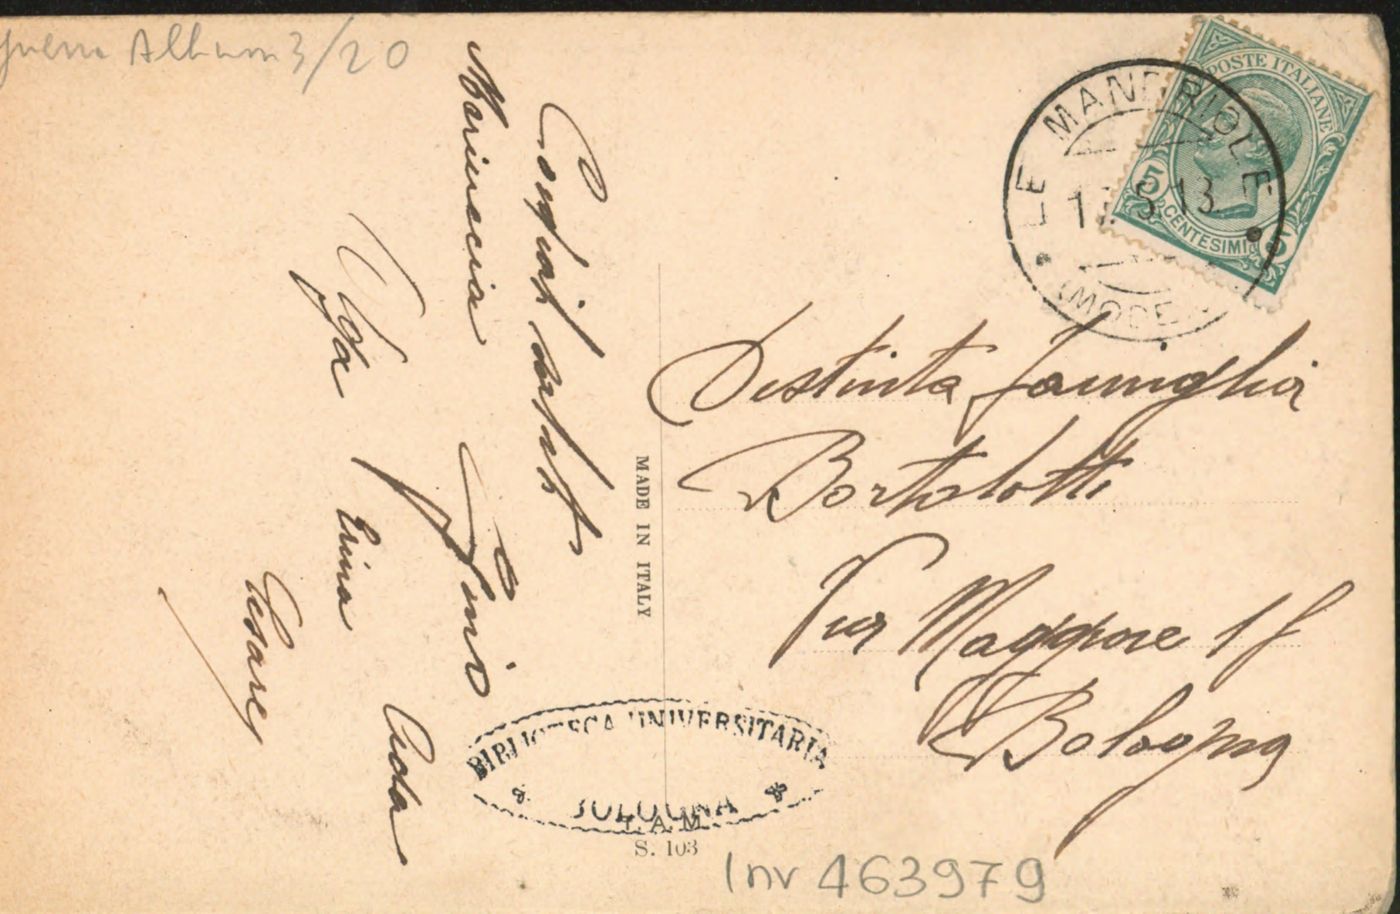 Guerra Album 3/20
POSTE ITALIANE
5 CENTESIMI 5
LE MANDRIOLE
17.5.13
(MODE
Cordiali saluti
Mariuccia Gino
Ada
Olga Erina
Cesare
MADE IN ITALY
Distinta Famiglia
Bortolotti
Via Maggiore 1f
Bologna
BIBLIOTECA UNIVERSITARIA
BOLOGNA
T.A.M.
S. 103
Inv 463979